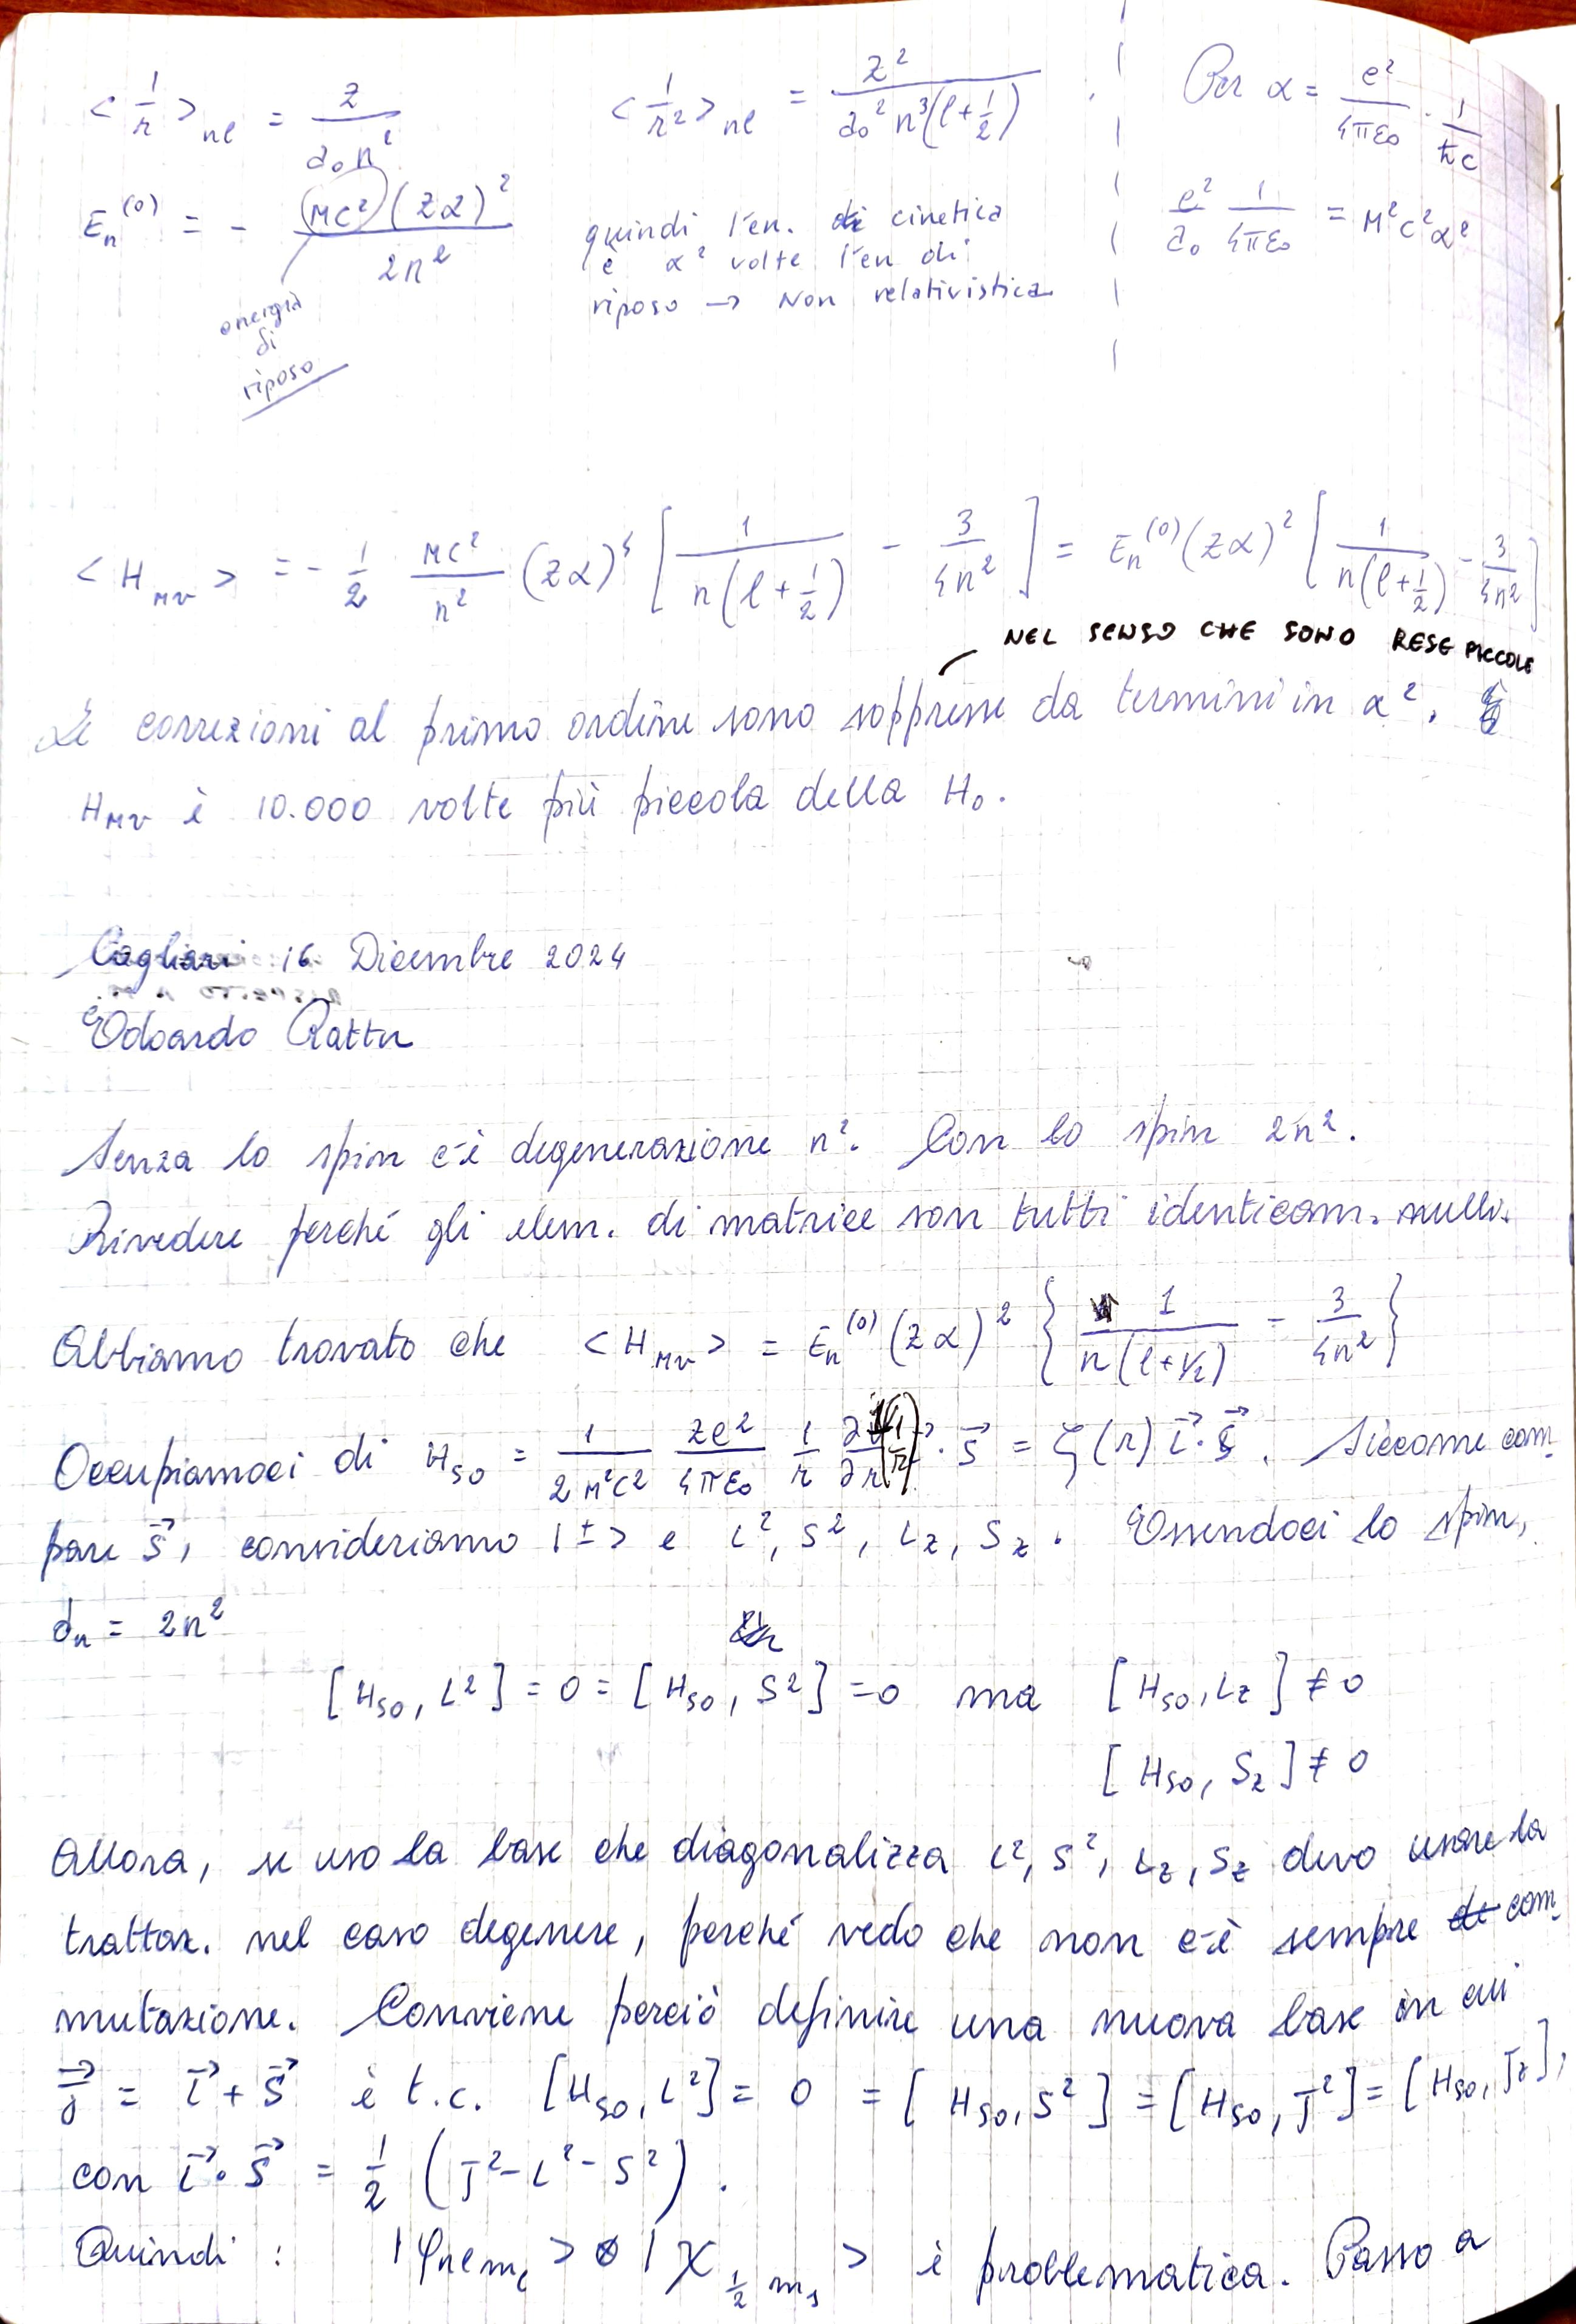 < 1/r >_nl = Z / (a₀ n²)    < 1/r² >_nl = Z² / (a₀² n³ (l + 1/2)) .    Per α = e²/(4πε₀) · 1/(ħc)
E_n^(0) = - (Mc²)(Zα)² / 2n²    quindi l'en. di cinetica    e²/a₀ 1/(4πε₀) = M²c²α²
è α² volte l'en di
riposo → Non relativistica
energia
di
riposo
< H_MV > = - 1/2 Mc²/n² (Zα)⁴ [ 1/(n(l + 1/2)) - 3/(4n²) ] = E_n^(0) (Zα)² [ 1/(n(l + 1/2)) - 3/(4n²) ]
NEL SENSO CHE SONO RESE PICCOLE
Le correzioni al primo ordine sono soppresse da termini in α².
H_MV è 10.000 volte più piccola della H₀.
Cagliari 16 Dicembre 2024
Edoardo Pattu
Senza lo spin c'è degenerazione n². Con lo spin 2n².
Rivedere perché gli elem. di matrice son tutti identicam. nulli.
Abbiamo trovato che < H_MV > = E_n^(0) (Zα)² { 1/(n(l+1/2)) - 3/(4n²) }
Occupiamoci di H_SO = 1/(2M²c²) Ze²/(4πε₀) 1/r ∂/∂r (1/r) · S⃗ = ζ(r) L⃗·S⃗ . Siccome com-
pare S⃗, consideriamo |±> e L², S², L_z, S_z . Essendoci lo spin,
d_n = 2n²
[H_SO, L²] = 0 = [H_SO, S²] = 0 ma [H_SO, L_z] ≠ 0
[H_SO, S_z] ≠ 0
Allora, se uso la base che diagonalizza L², S², L_z, S_z devo usare la
trattaz. nel caso degenere, perché vedo che non c'è sempre com-
mutazione. Conviene perciò definire una nuova base in cui
J⃗ = L⃗ + S⃗ è t.c. [H_SO, L²] = 0 = [H_SO, S²] = [H_SO, J²] = [H_SO, J_z],
con L⃗·S⃗ = 1/2 (J² - L² - S²) .
Quindi : |φ_nlm_l > ⊗ | χ_1/2 m_s > è problematica. Passo a